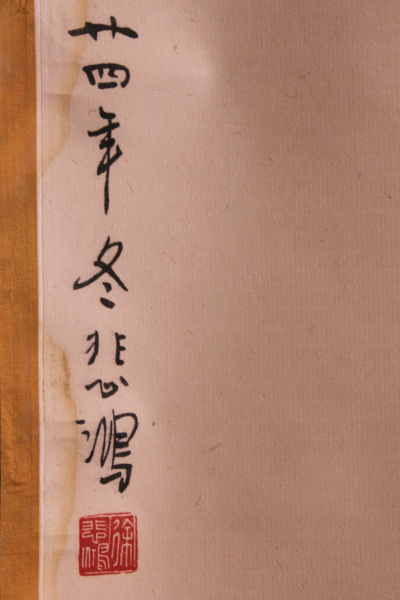 廿四年冬悲鴻
徐悲鴻